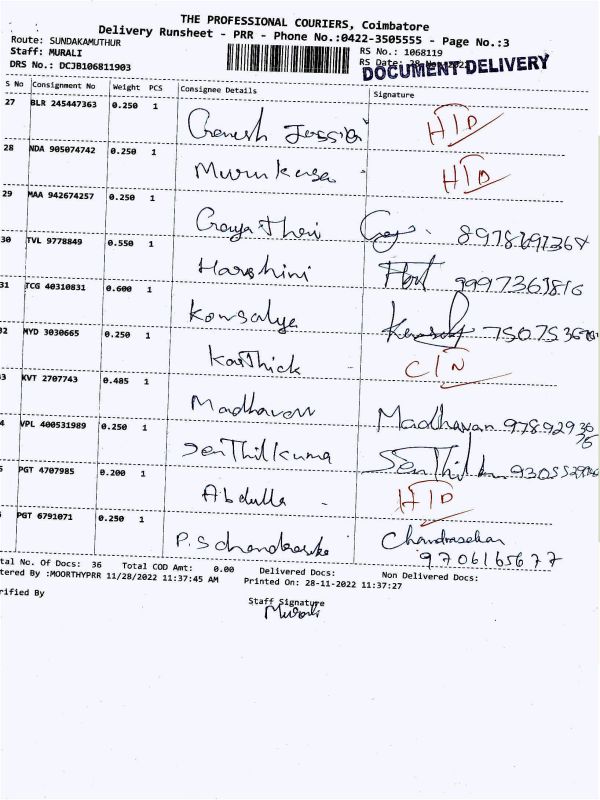 THE PROFESSIONAL COURIERS, Coimbatore
Delivery Runsheet - PRR - Phone No.:0422-3505555 - Page No.:3
Route: SUNDAKAMUTHUR
RS No.: 1068119
Staff: MURALI
RS Date:
DRS No.: DCJB106811903
DOCUMENT DELIVERY
S No Consignment No Weight PCS Consignee Details Signature
27 BLR 245447363 0.250 1 Ganesh HID
28 NDA 905074742 0.250 1 HID
29 MAA 942674257 0.250 1 Gayatheri
30 TVL 9778849 0.550 1 Harshini
31 TCG 40310831 0.600 1 Kowsalya
32 MYD 3030665 0.250 1 Karthick CIN
3 KVT 2707743 0.485 1 Madhavan Madhavan 9789293036
4 VPL 400531989 0.250 1 SenThilkuma SenThil
5 PGT 4707985 0.200 1 Abdulla - HID
PGT 6791071 0.250 1 Chandrasekar
9706165677
tal No. Of Docs: 36 Total COD Amt: 0.00 Delivered Docs: Non Delivered Docs:
tered By :MOORTHYPRR 11/28/2022 11:37:45 AM Printed On: 28-11-2022 11:37:27
rified By
Staff Signature
Murali